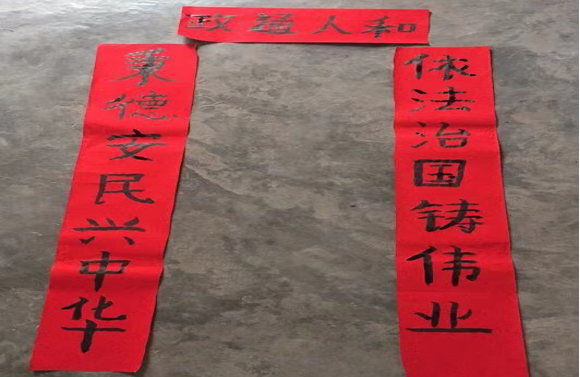 政通人和
依法治国铸伟业
秉德安民兴中华